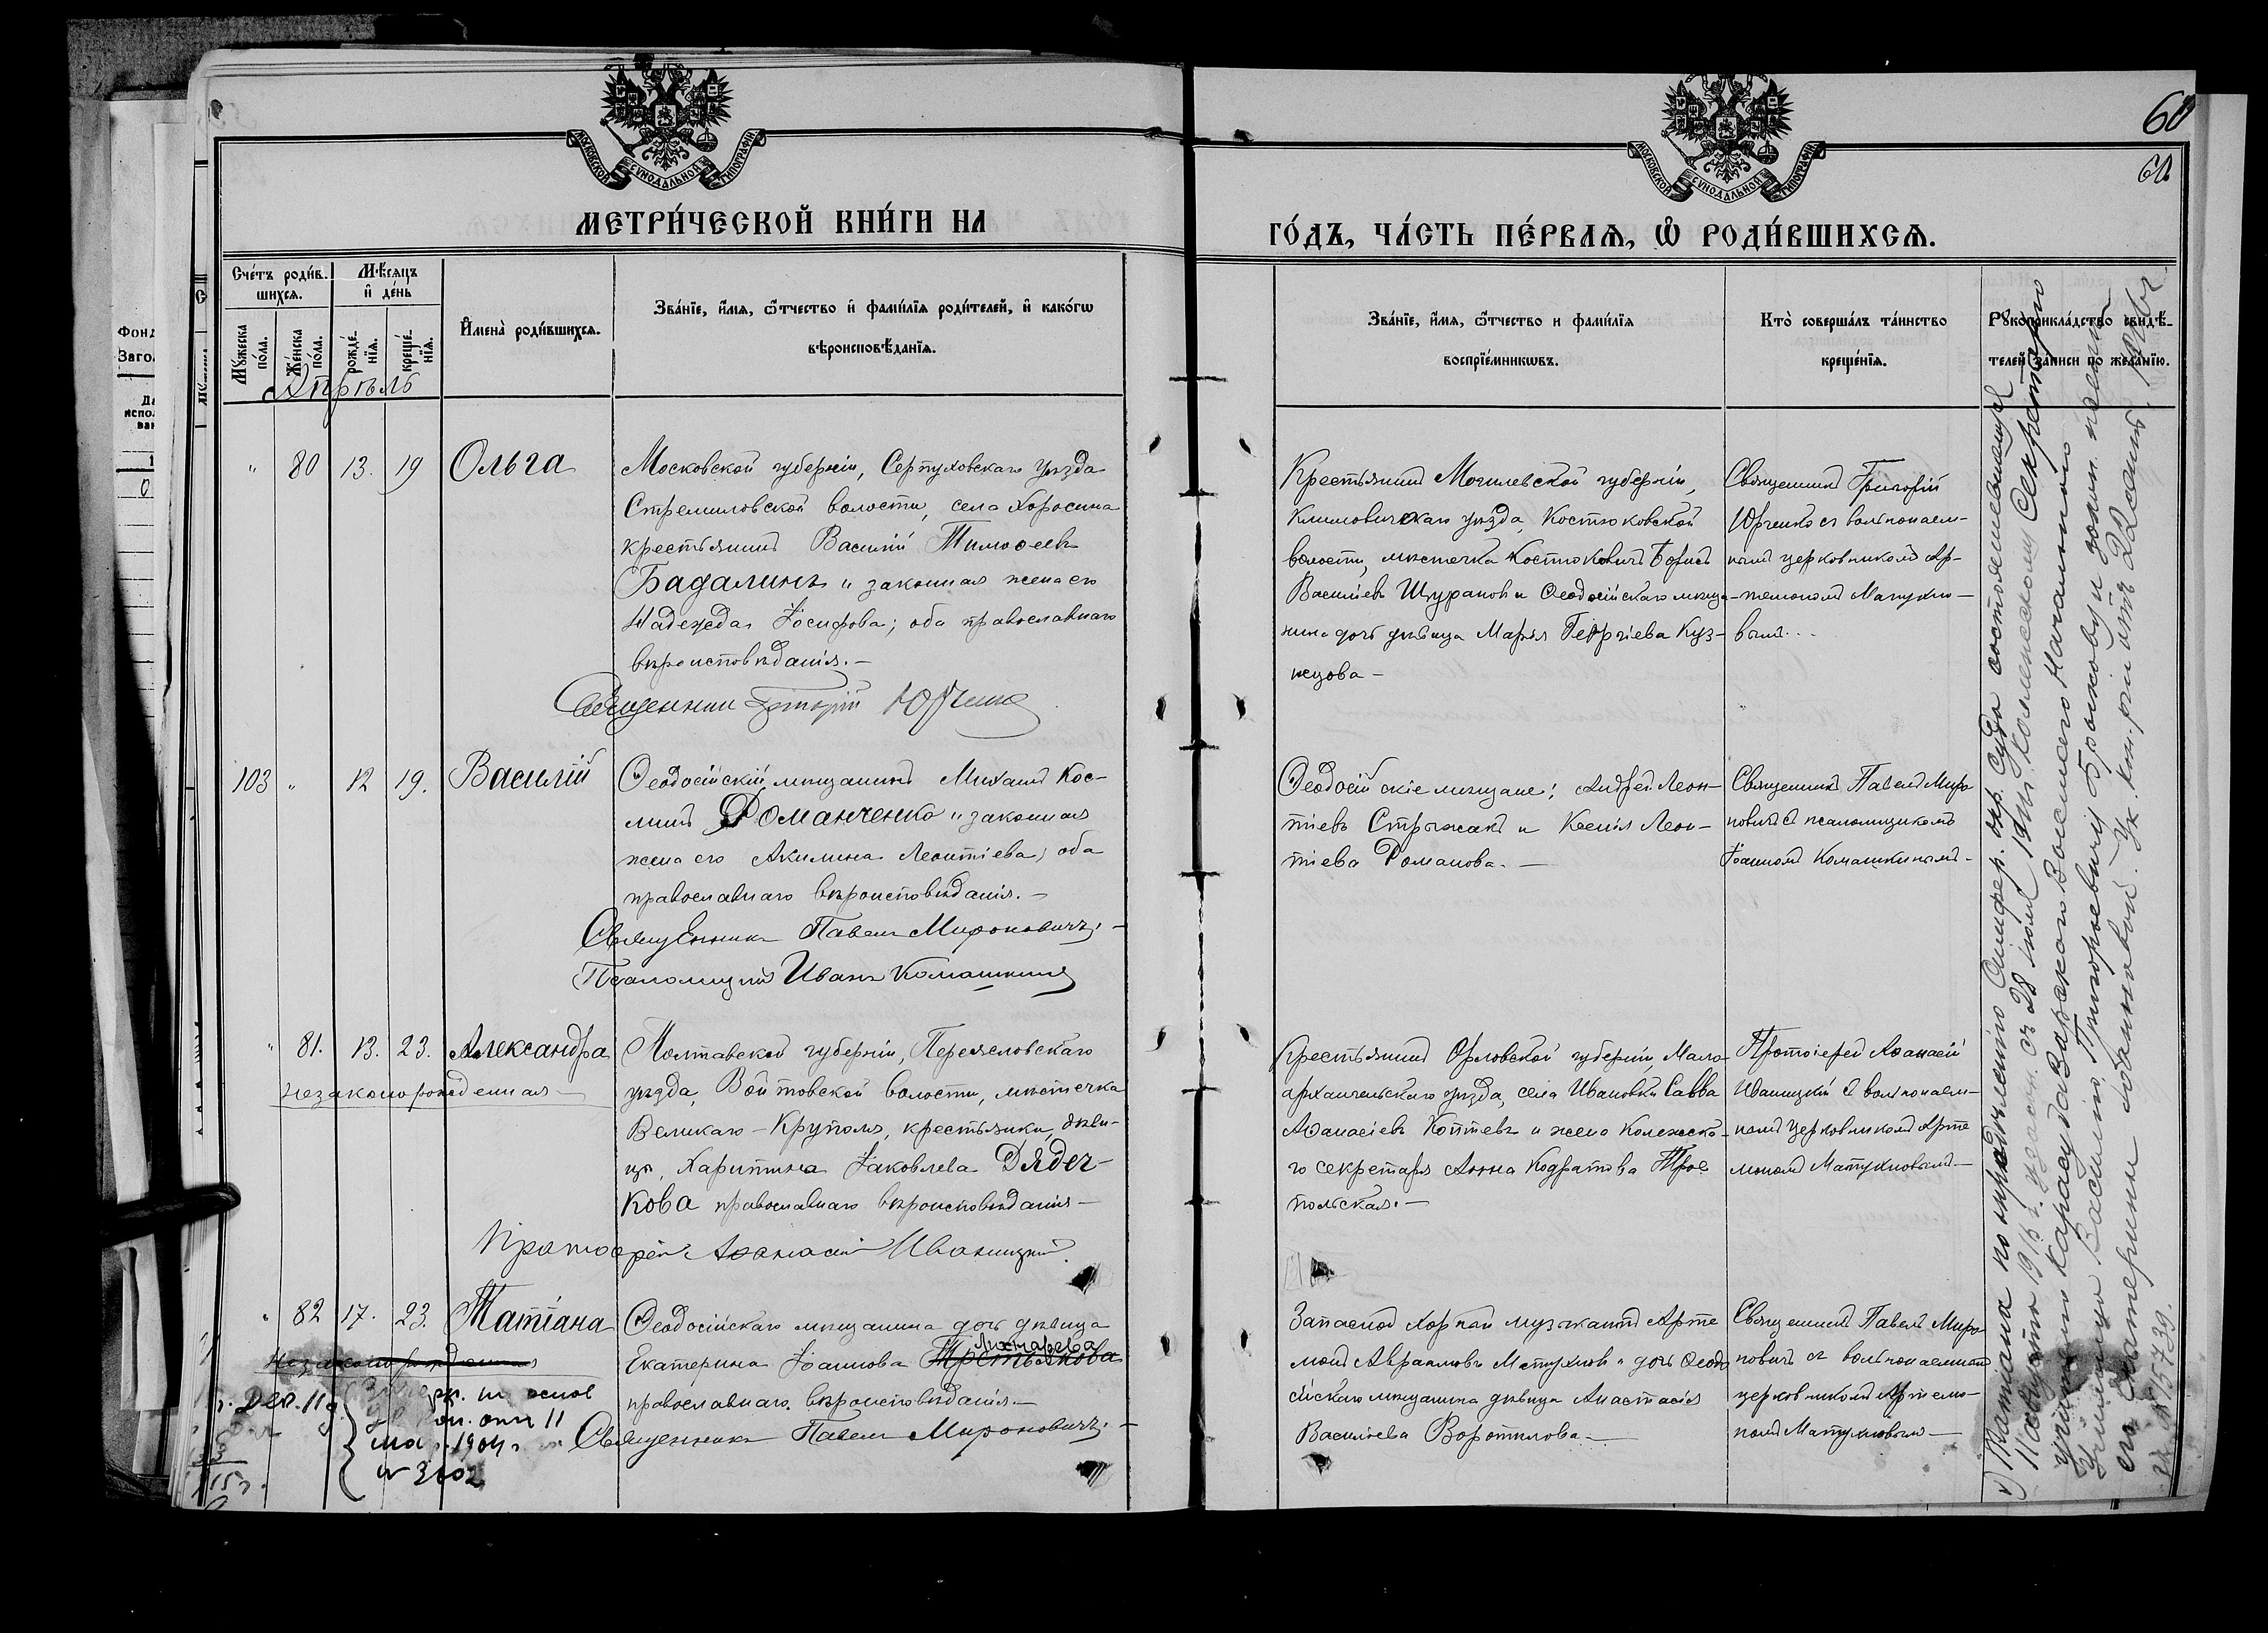 60
60.
МОСКОВСКОЙ СѴНОДАЛЬНОЙ ТИПОГРАФІИ
МОСКОВСКОЙ СѴНОДАЛЬНОЙ ТИПОГРАФІИ
МЕТРИ́ЧЕСКОЙ КНИ́ГИ НА
ГО́ДЪ, ЧА́СТЬ ПЕ́РВАѦ, Ѡ҆ РОДИ́ВШИХСѦ.
Сче́тъ роди́в-
шихсѧ.
Мѣ́сѧцъ
и҆ де́нь
Мꙋ́жеска по́ла.
Же́нска по́ла.
рожде́нїѧ.
креще́нїѧ.
И҆мена̀ роди́вшихсѧ.
Зва́нїе, и҆́мѧ, ѻ҆́тчество и҆ фами́лїѧ роди́телей, и҆ како́гѡ
вѣроисповѣ́данїѧ.
Зва́нїе, и҆́мѧ, ѻ҆́тчество и фами́лїѧ
воспрїе́мникѡвъ.
Кто̀ соверша́лъ та́инство
креще́нїѧ.
Рꙋкоприкла́дство свидѣ́-
телей за́писи по жела́нїю.
Апрѣль
" 80 13. 19 Ольга
Московской губерніи, Серпуховскаго уѣзда
Стремиловской волости, села Хоросина
крестьянинъ Василій Тимоѳеевъ
Бадалинъ и законная жена его
Надежда Іосифова; оба православнаго
вѣроисповѣданія.—
Священникъ Григорій Юрченко
Крестьянинъ Могилевской губерніи,
Климовичскаго уѣзда, Костюковской
волости, мѣстечка Костюковичъ Борисъ
Васильевъ Щурановъ и Ѳеодосійскаго мѣща-
нина дочь дѣвица Марія Георгіева Куз-
нецова—
Священникъ Григорій
Юрченко съ вольнонаем-
нымъ церковникомъ Ар-
темономъ Матухно-
вымъ.
103 " 12 19. Василій
Ѳеодосійскій мѣщанинъ Михаилъ Кос-
минъ Романченко и законная
жена его Акилина Леонтіева; оба
православнаго вѣроисповѣданія.—
Священникъ Павелъ Мироновичъ.—
Псаломщикъ Иванъ Комашкинъ
Ѳеодосійскіе мѣщане: Андрей Леон-
тіевъ Стрыжакъ и Ксенія Леон-
тіева Романова.—
Священникъ Павелъ Миро-
новичъ съ псаломщикомъ
Іоанномъ Комашкинымъ.
" 81. 13. 23. Александра
незаконорожденная
Полтавской губерніи, Переяловскаго
уѣзда, Войтовской волости, мѣстечка
Великаго-Круполя, крестьянки, дѣви-
ца, Харитина Іаковлева Дядеч-
кова православнаго вѣроисповѣданія—
Протоіерей Аѳанасій Иваницкій.
Крестьянинъ Орловской губерніи, Мало-
архангельскаго уѣзда, села Ивановки Савва
Аѳанасіевъ Коптевъ и жена Коллежска-
го секретаря Анна Кодратова Трое
польская.—
Протоіерей Аѳанасій
Иваницкій съ вольнонаем-
нымъ церковникомъ Арте
мономъ Матухновымъ.—
" 82 17. 23. Татіана
незаконорожденная
Ѳеодосійскаго мѣщанина дочь дѣвица
Лихтарева
Екатерина Іоаннова Третьякова
православнаго вѣроисповѣданія.—
Священникъ Павелъ Мироновичъ.—
1904 г.
Запасной хорной музыкантъ Арте
монъ Авраамовъ Матухновъ и дочь Ѳеодо
сійскаго мѣщанина дѣвица Анастасія
Васильева Воротилова.—
Священникъ Павелъ Миро-
новичъ съ вольнонаемнымъ
церковникомъ Артемо-
номъ Матухновымъ—
Татіана по опредѣленію Симфер. Окр. Суда состоявшемуся
11 августа 191 г. удочер. съ 28 іюля 191 г. Коллежскому Секретарю
Карасубазарскаго Воинскаго Начальника
Василію Григорьевичу Брынкову и
его Екатерины
№ 15739.
Фонд
Загол